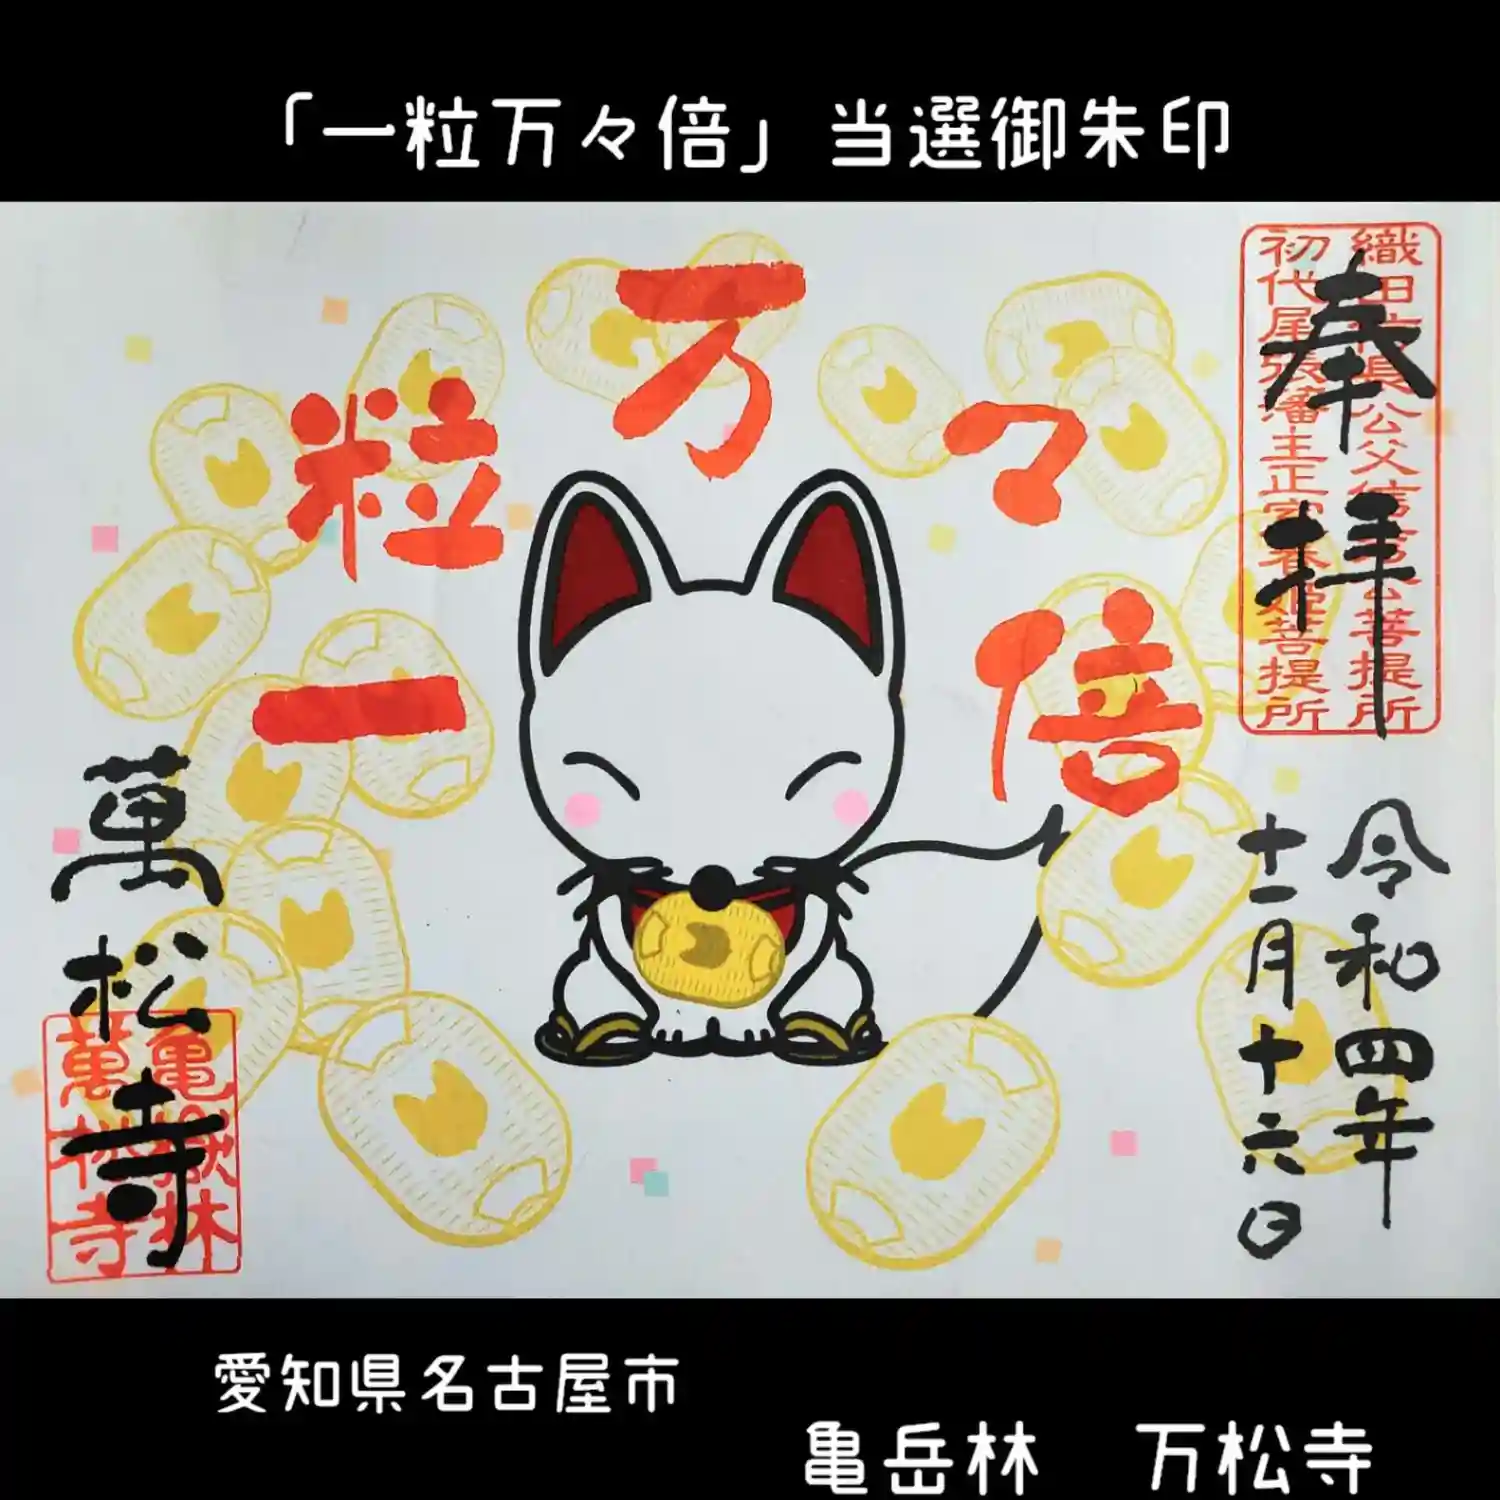 「一粒万々倍」当選御朱印
奉拝
織田信長公父信秀公菩提所
初代尾張藩主正室春姫菩提所
令和四年
十一月十六日
一粒万々倍
萬松寺
亀嶽林
萬松寺
愛知県名古屋市
亀岳林 万松寺